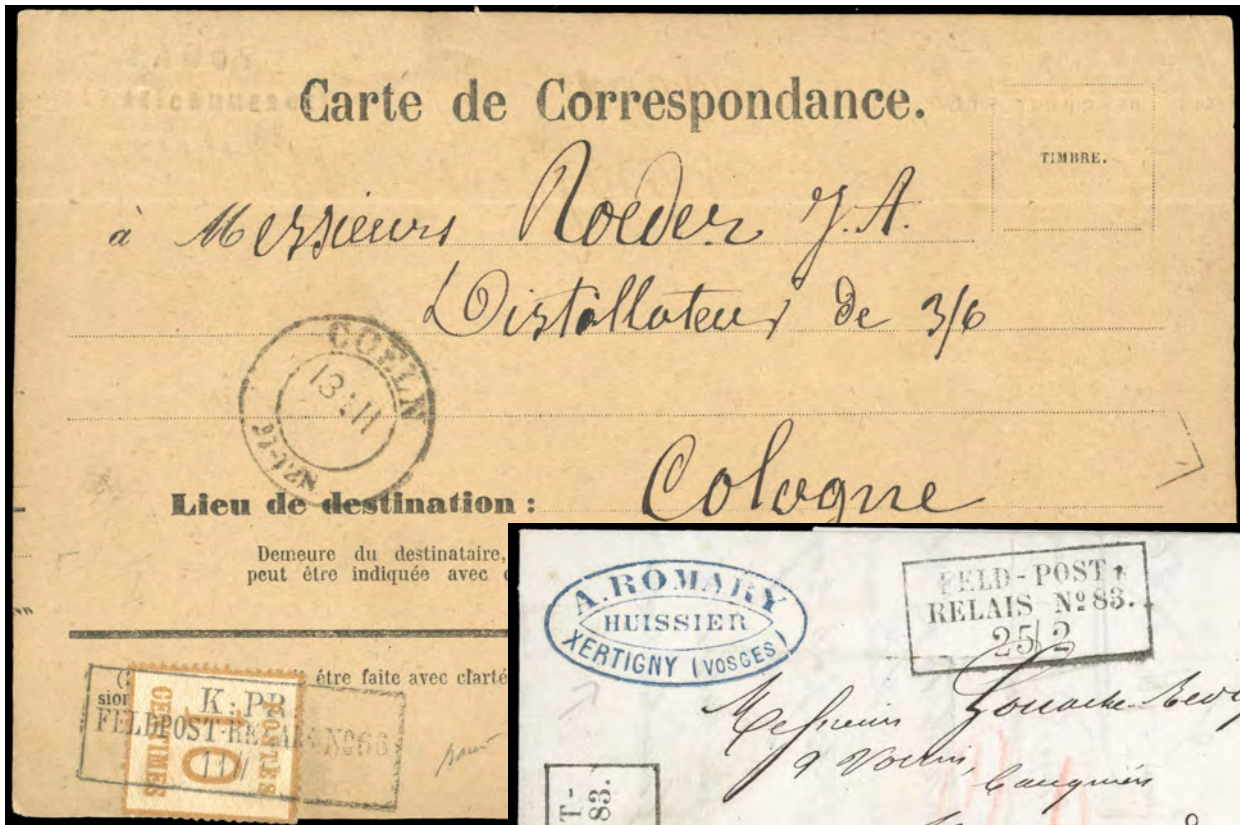 Carte de Correspondance.
TIMBRE.
à Messieurs Roeder J. A.
Distillateur de 3/6
COELN
13 11
Cologne
Lieu de destination :
Demeure du destinataire,
peut être indiquée avec
être faite avec clarté
sion
K: PR
FELDPOST-RELAIS No 66
11/
POSTES
10
CENTIMES
A. ROMARY
HUISSIER
XERTIGNY (VOSGES)
FELD-POST
RELAIS No 83.
25/2
Messieurs
T-
83.